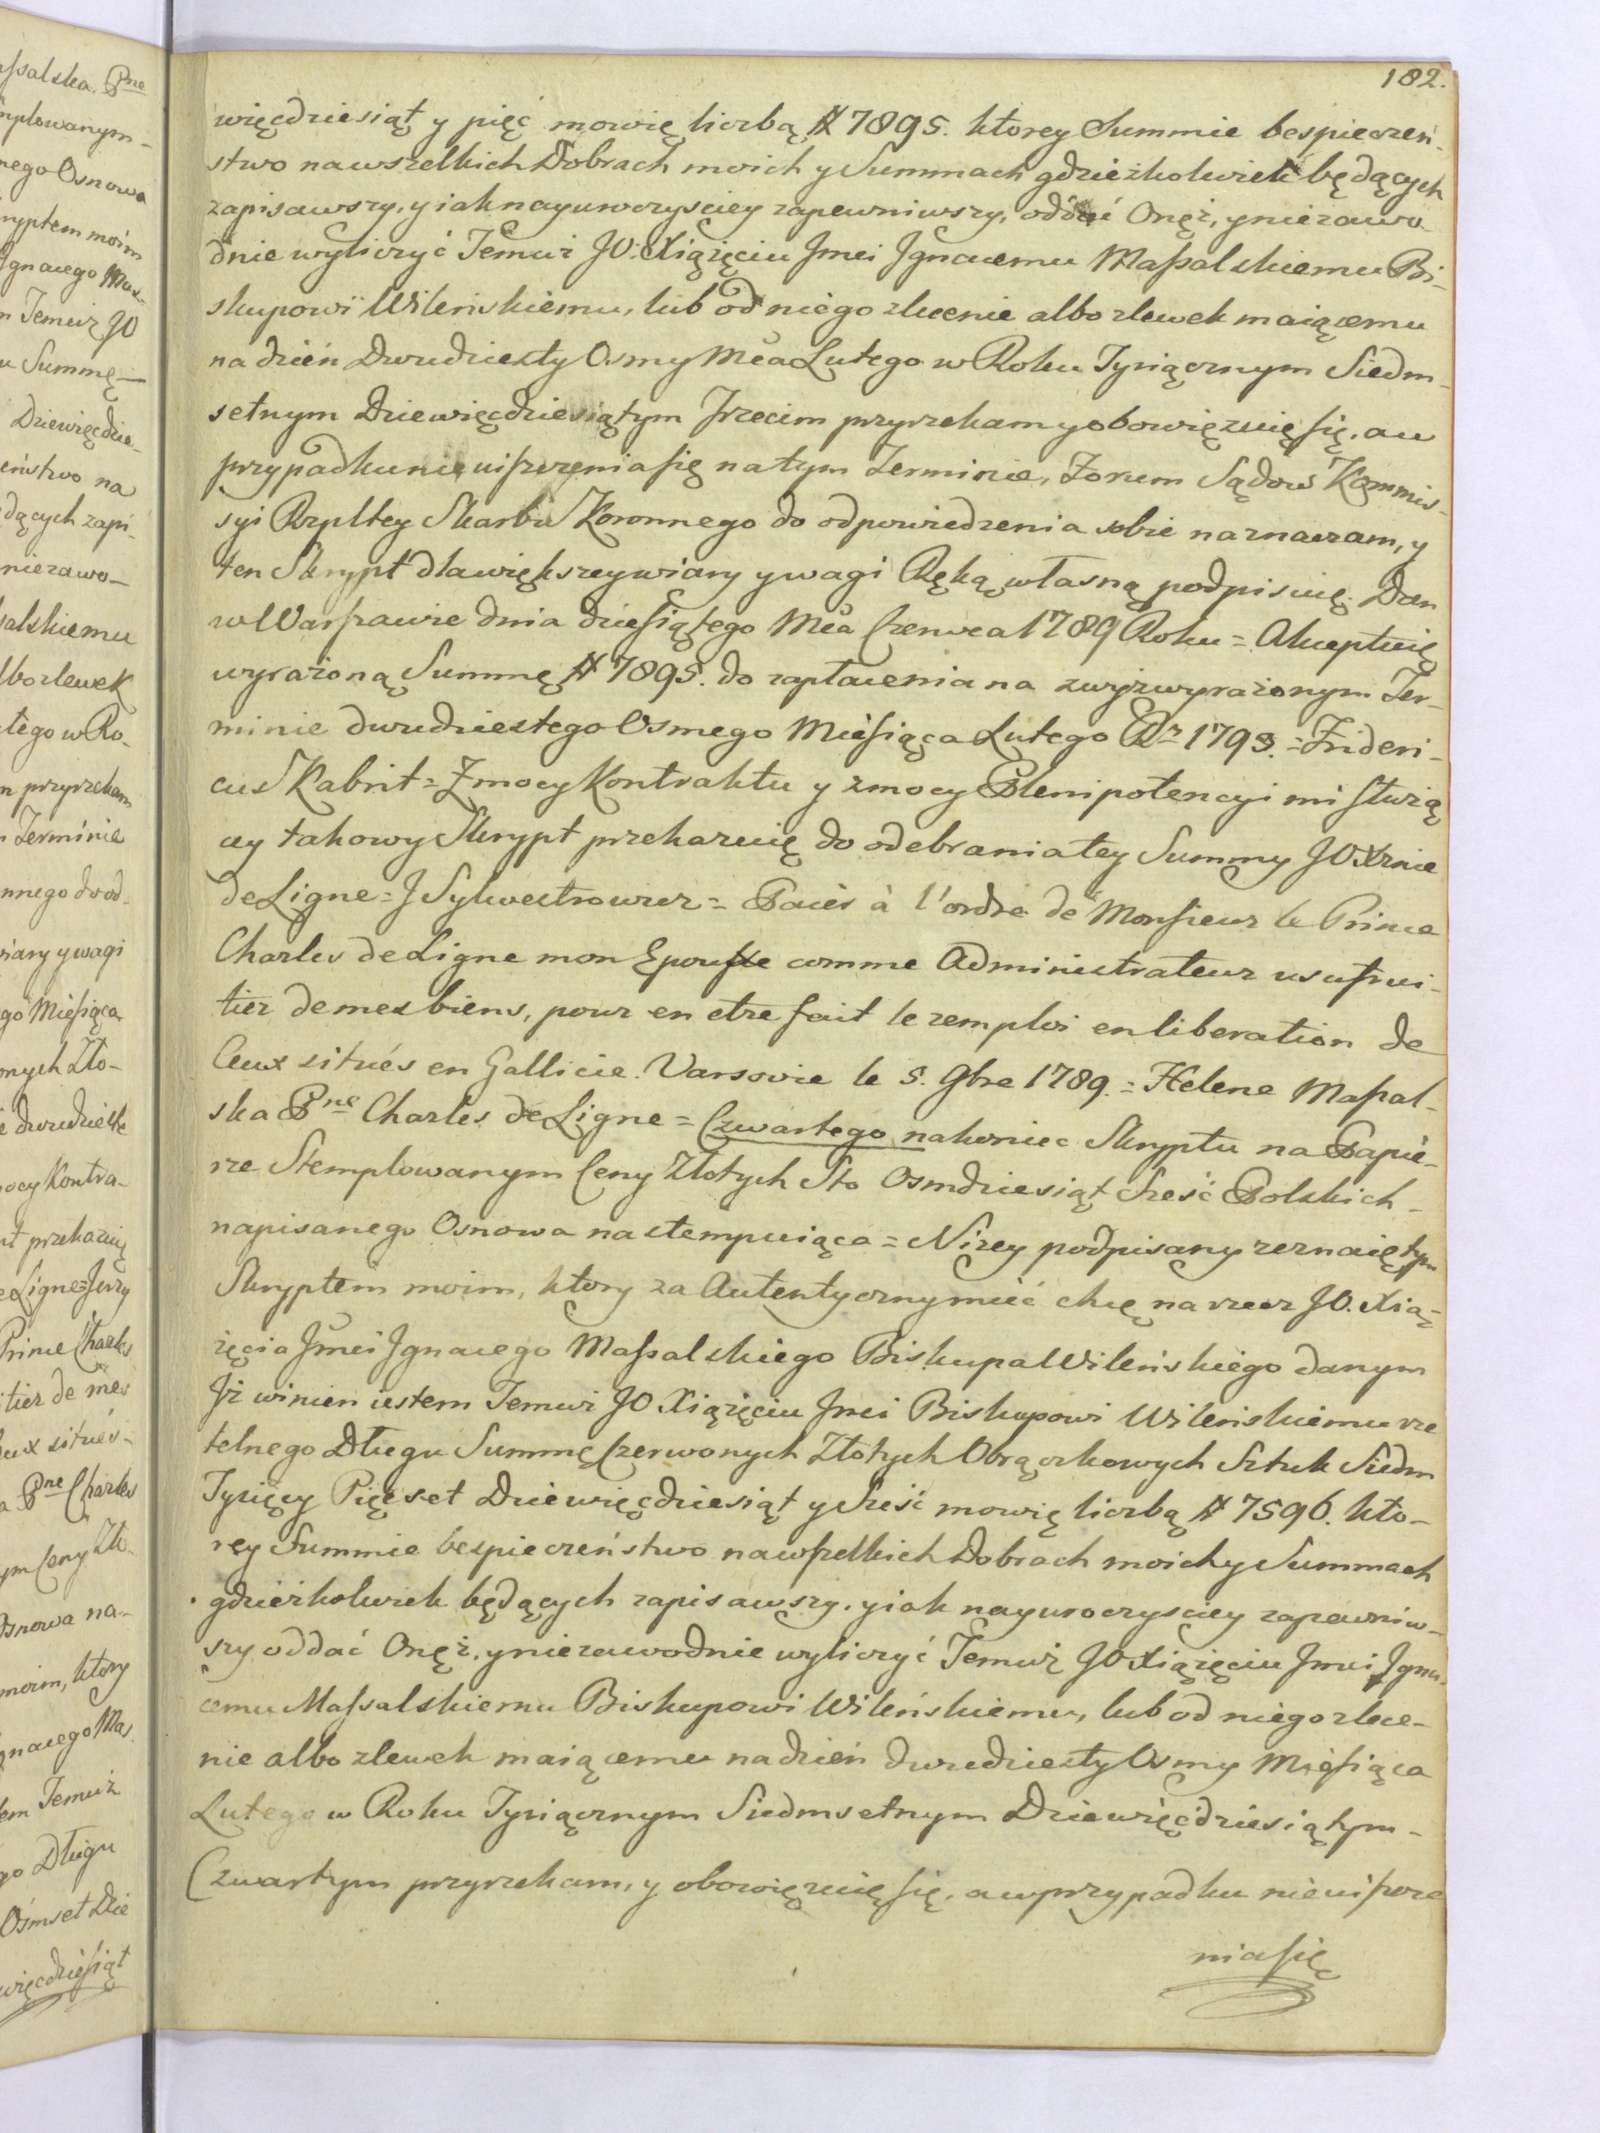 182.
więcdziesiąt y pięć mowię liczbą # 7895. ktorey Summie bespieczeń-
stwo na wszelkich Dobrach moich y Summach gdzieżkolwiek będących
zapisawszy, y iak nayuroczysciey zapewniwszy, oddać Onęż, y niezawo-
dnie wyliczyć Temuż JO. Xiążęciu Jmci Jgnacemu Maſsalskiemu Bi-
skupowi Wileńskiemu, lub od niego zlecenie albo zlewek maiącemu
na dzień Dwudziesty Osmy Mca Lutego w Roku Tysiącznym Siedm-
setnym Dziewięcdziesiątym Trzecim przyrzekam y obowięzuię się, a w
przypadku nieuiſzczenia się na tym Terminie, Forum Sądow Kommis-
syi Rzpltey Skarbu Koronnego do odpowiedzenia sobie naznaczam, y
ten Skrypt dla większey wiary y wagi Ręką własną podpisuię. Dan
w Warſzawie dnia dzieſiątego Mca Czerwca 1789 Roku = Akceptuię
wyrażoną Summę # 7895. do zapłacenia na zwyżwyrażonym Ter-
minie dwudziestego Osmego Mieſiąca Lutego Rr 1793. = Frideri-
cus Kabrit = Z mocy Kontraktu y z mocy Plenipotencyi mi ſłużą
cey takowy Skrypt przekazuię do odebrania tey Summy JO Xżnie
de Ligne = J Sylwestrowicz = Paiés à l'ordre de Monſieur le Prince
Charles de Ligne mon Epouſe comme Administrateur usufrui-
tier de mes biens, pour en etre fait le remploi en liberation de
Ceux situés en Gallicie. Varsovie le 5. 9bre 1789. = Helene Maſsal-
ska Pne Charles de Ligne = Czwartego nakoniec Skryptu na Papie-
rze Stemplowanym Ceny Złotych Sto Osmdziesiąt Sześć Polskich -
napisanego Osnowa nastempuiąca = Niżey podpisany zeznaię tym
Skryptem moim, ktory za Autentyczny mieć chcę na rzecz JO. Xią-
żęcia Jmci Jgnacego Maſsalskiego Biskupa Wileńskiego danym
Jż winien iestem Temuż JO Xiążęciu Jmci Biskupowi Wileńskiemu rze
telnego Długu Summę Czerwonych Złotych Obrączkowych Sztuk Siedm
Tysięcy Pięćset Dziewięcdziesiąt y Sześć mowię liczbą # 7596. kto-
rey Summie bespieczeństwo na wſzelkich Dobrach moich y Summach
gdzieżkolwiek będących zapisawszy, y iak nayuroczysciey zapewniw-
szy oddać Onęż, y niezawodnie wyliczyć Temuż JO Xiążęciu Jmci Jgna-
cemu Maſsalskiemu Biskupowi Wileńskiemu, lub od niego zlece-
nie albo zlewek maiącemu na dzień dwudziesty Osmy Mieſiąca
Lutego w Roku Tysiącznym Siedmsetnym Dziewięćdziesiątym -
Czwartym przyrzekam, y obowięzuię ſię, a w przypadku nieuiſzcze
nia ſię